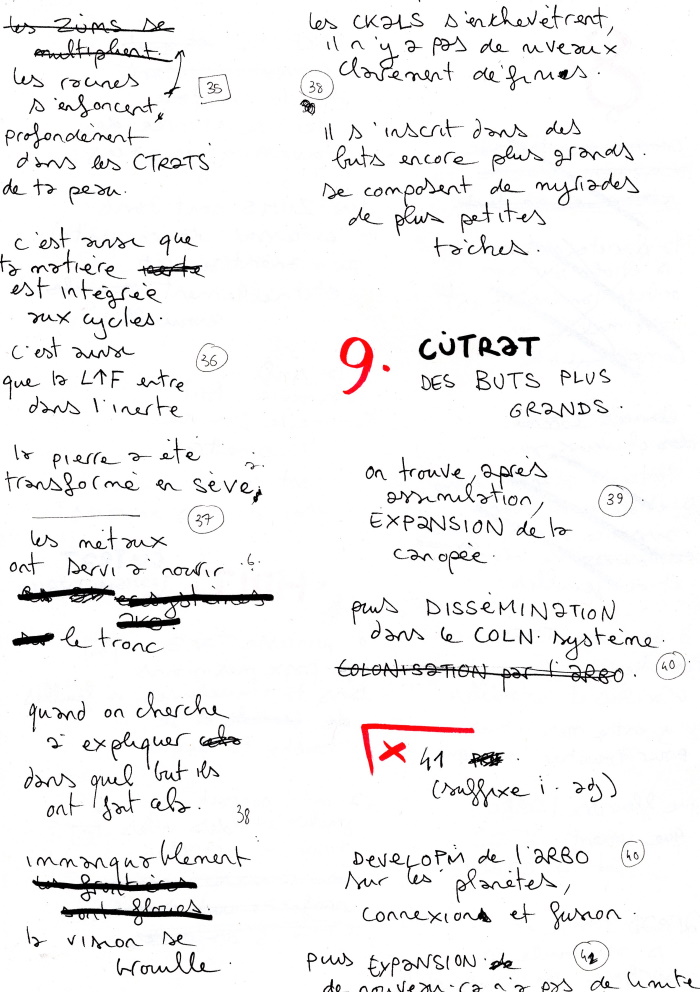 les ZÜMS se
multiplient.
les racines
s'enfoncent,
35
profondément
dans les CTRATS
de ta peau.
c'est ainsi que
ta matière
est intégrée
aux cycles.
c'est ainsi
36
que la L↑F entre
dans l'inerte
la pierre a été
transformé en sève,
a.
37
les métaux
ont servi à nourrir
.b.
écosystèmes
le tronc
quand on cherche
à expliquer cela
dans quel but ils
ont fait cela.
38
immanquablement
les frontières
sont floues.
la vision se
brouille.
les CKALS s'enchevêtrent,
il n'y a pas de niveaux
clairement définis.
38
il s'inscrit dans des
buts encore plus grands.
se composent de myriades
de plus petites
tâches.
9. CÜTRAT
DES BUTS PLUS
GRANDS.
on trouve, après
assimilation,
39
EXPANSION de la
canopée.
puis DISSÉMINATION
dans le COLN. système.
COLONISATION par l'ARBO.
40
x 41
(suffixe i. adj)
DEVELOPM de l'ARBO
40
sur les planètes,
connexion et fusion.
puis EXPANSION de
42
de nouveau. ça n'a pas de limite